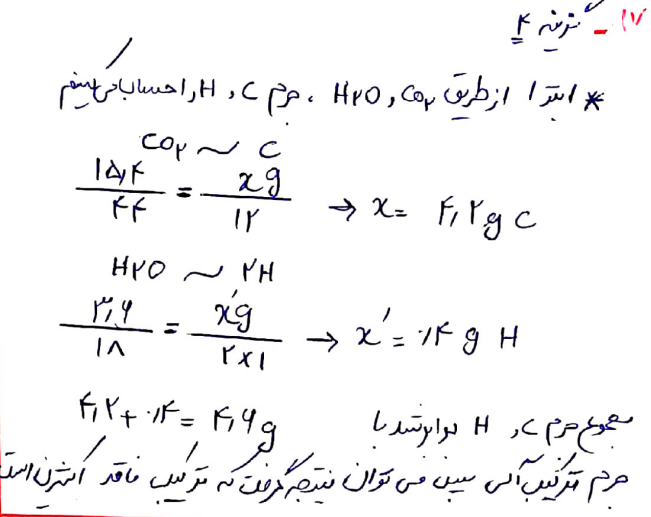 ۱۷ - گزینه ۴
* ابتدا از طریق CO۲ و H۲O ، جرم C و H را حساب می کنیم
CO۲ ~ C
۱۵٫۴ / ۴۴ = x g / ۱۲ → x = ۴٫۲ g C
H۲O ~ ۲H
۳٫۶ / ۱۸ = x′g / ۲×۱ → x′ = ۰٫۴ g H
مجموع جرم C و H برابر شد با ۴٫۲ + ۰٫۴ = ۴٫۶ g
جرم ترکیب آلی پس می توان نتیجه گرفت که ترکیب فاقد اکسیژن است